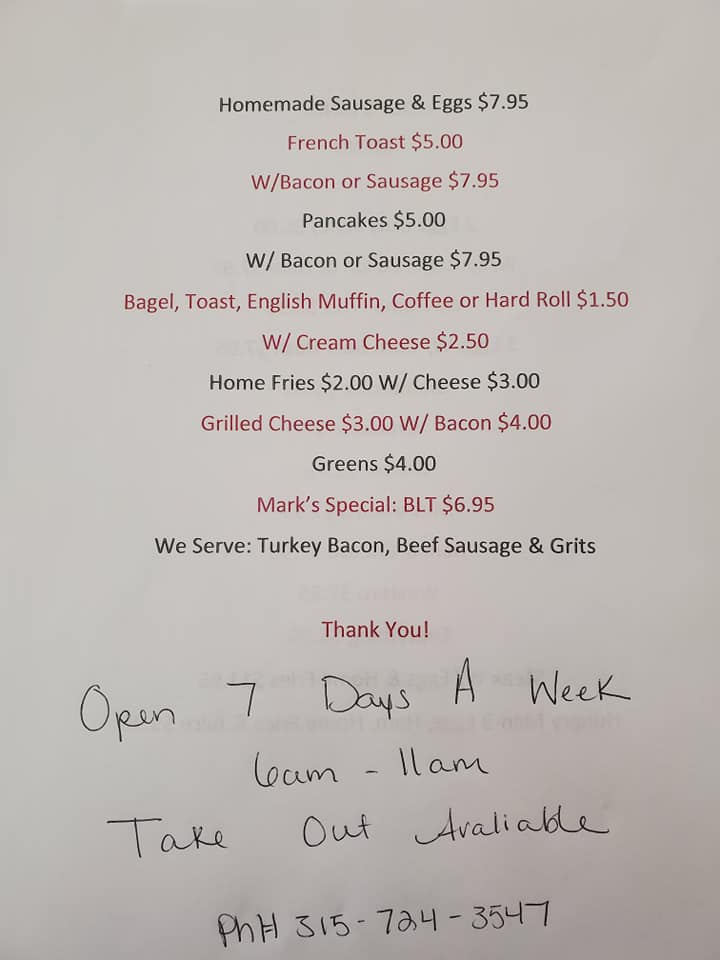 Homemade Sausage & Eggs $7.95
French Toast $5.00
W/Bacon or Sausage $7.95
Pancakes $5.00
W/ Bacon or Sausage $7.95
Bagel, Toast, English Muffin, Coffee or Hard Roll $1.50
W/ Cream Cheese $2.50
Home Fries $2.00 W/ Cheese $3.00
Grilled Cheese $3.00 W/ Bacon $4.00
Greens $4.00
Mark’s Special: BLT $6.95
We Serve: Turkey Bacon, Beef Sausage & Grits
Thank You!
Open 7 Days A Week
6am - 11am
Take Out Avaliable
PhH 315-724-3547